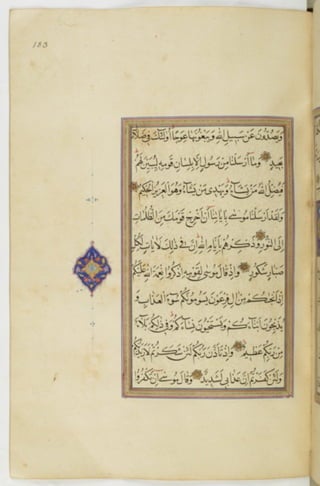 183
وَيَصُدُّونَ عَنْ سَبِيلِ اللهِ وَيَبْغُونَهَا عِوَجًا أُولَئِكَ فِي ضَلَالٍ
بَعِيدٍ وَمَا أَرْسَلْنَا مِنْ رَسُولٍ إِلَّا بِلِسَانِ قَوْمِهِ لِيُبَيِّنَ لَهُمْ
فَيُضِلُّ اللهُ مَنْ يَشَاءُ وَيَهْدِي مَنْ يَشَاءُ وَهُوَ الْعَزِيزُ الْحَكِيمُ
وَلَقَدْ أَرْسَلْنَا مُوسَى بِآيَاتِنَا أَنْ أَخْرِجْ قَوْمَكَ مِنَ الظُّلُمَاتِ
إِلَى النُّورِ وَذَكِّرْهُمْ بِأَيَّامِ اللهِ إِنَّ فِي ذَلِكَ لَآيَاتٍ لِكُلِّ
صَبَّارٍ شَكُورٍ وَإِذْ قَالَ مُوسَى لِقَوْمِهِ اذْكُرُوا نِعْمَةَ اللهِ عَلَيْكُمْ
إِذْ أَنْجَيكُمْ مِنْ آلِ فِرْعَوْنَ يَسُومُونَكُمْ سُوءَ الْعَذَابِ وَ
يُذَبِّحُونَ أَبْنَاءَكُمْ وَيَسْتَحْيُونَ نِسَاءَكُمْ وَفِي ذَلِكُمْ بَلَاءٌ
مِنْ رَبِّكُمْ عَظِيمٌ وَإِذْ تَأَذَّنَ رَبُّكُمْ لَئِنْ شَكَرْتُمْ لَأَزِيدَنَّكُمْ
وَلَئِنْ كَفَرْتُمْ إِنَّ عَذَابِي لَشَدِيدٌ وَقَالَ مُوسَى إِنْ تَكْفُرُوا